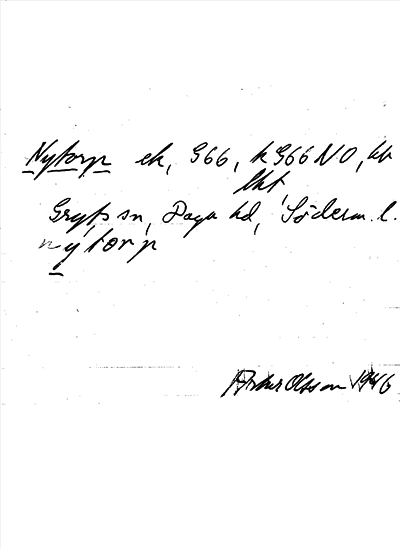 Nytorp ek, G66, k G66 NO, kb
lkt,
Gryts sn, Daga hd, Söderm. l.
nytorp
Artur Olsson 1946